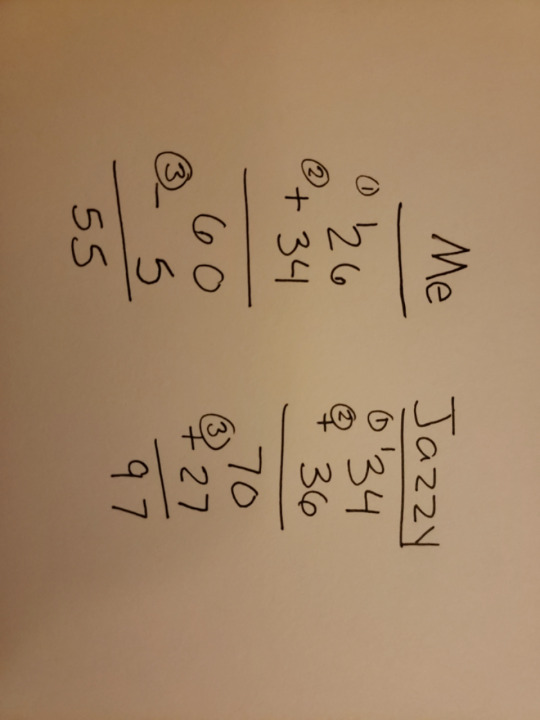 Me
① ¹26
② + 34
60
③ - 5
55
Jazzy
① ¹34
② + 36
70
③ + 27
97